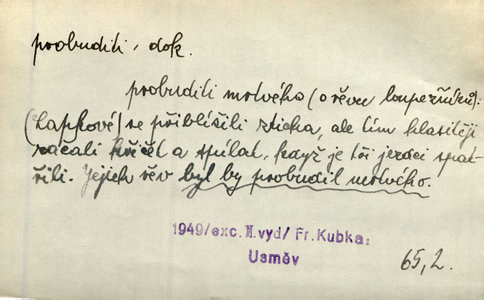 probuditi, dok.
probudili mrtvého (o řevu loupežníků):
(Lapkové) se přiblížili zticha, ale tím hlasitěji
začali křičet a spílat, když je tři jezdci spat-
řili. Jejich řev byl by probudil mrtvého.
1949/exc. II. vyd/ Fr. Kubka:
Úsměv
65,2.